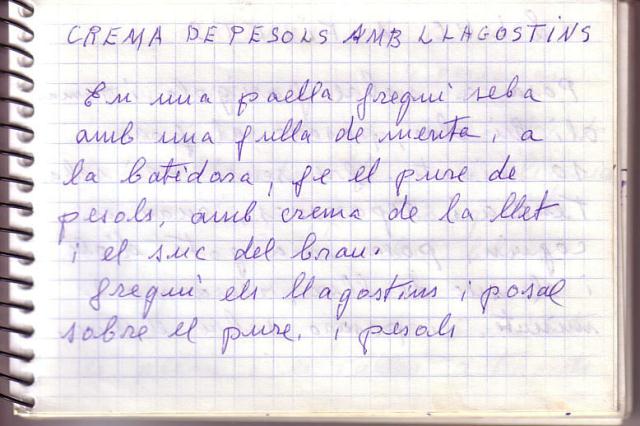 CREMA DE PESOLS AMB LLAGOSTINS
En una paella fregui seba
amb una fulla de menta, a
la batidora, fe el pure de
pesols, amb crema de la llet
i el suc del brau.
fregui els llagostins i posal
sobre el pure. i pesols